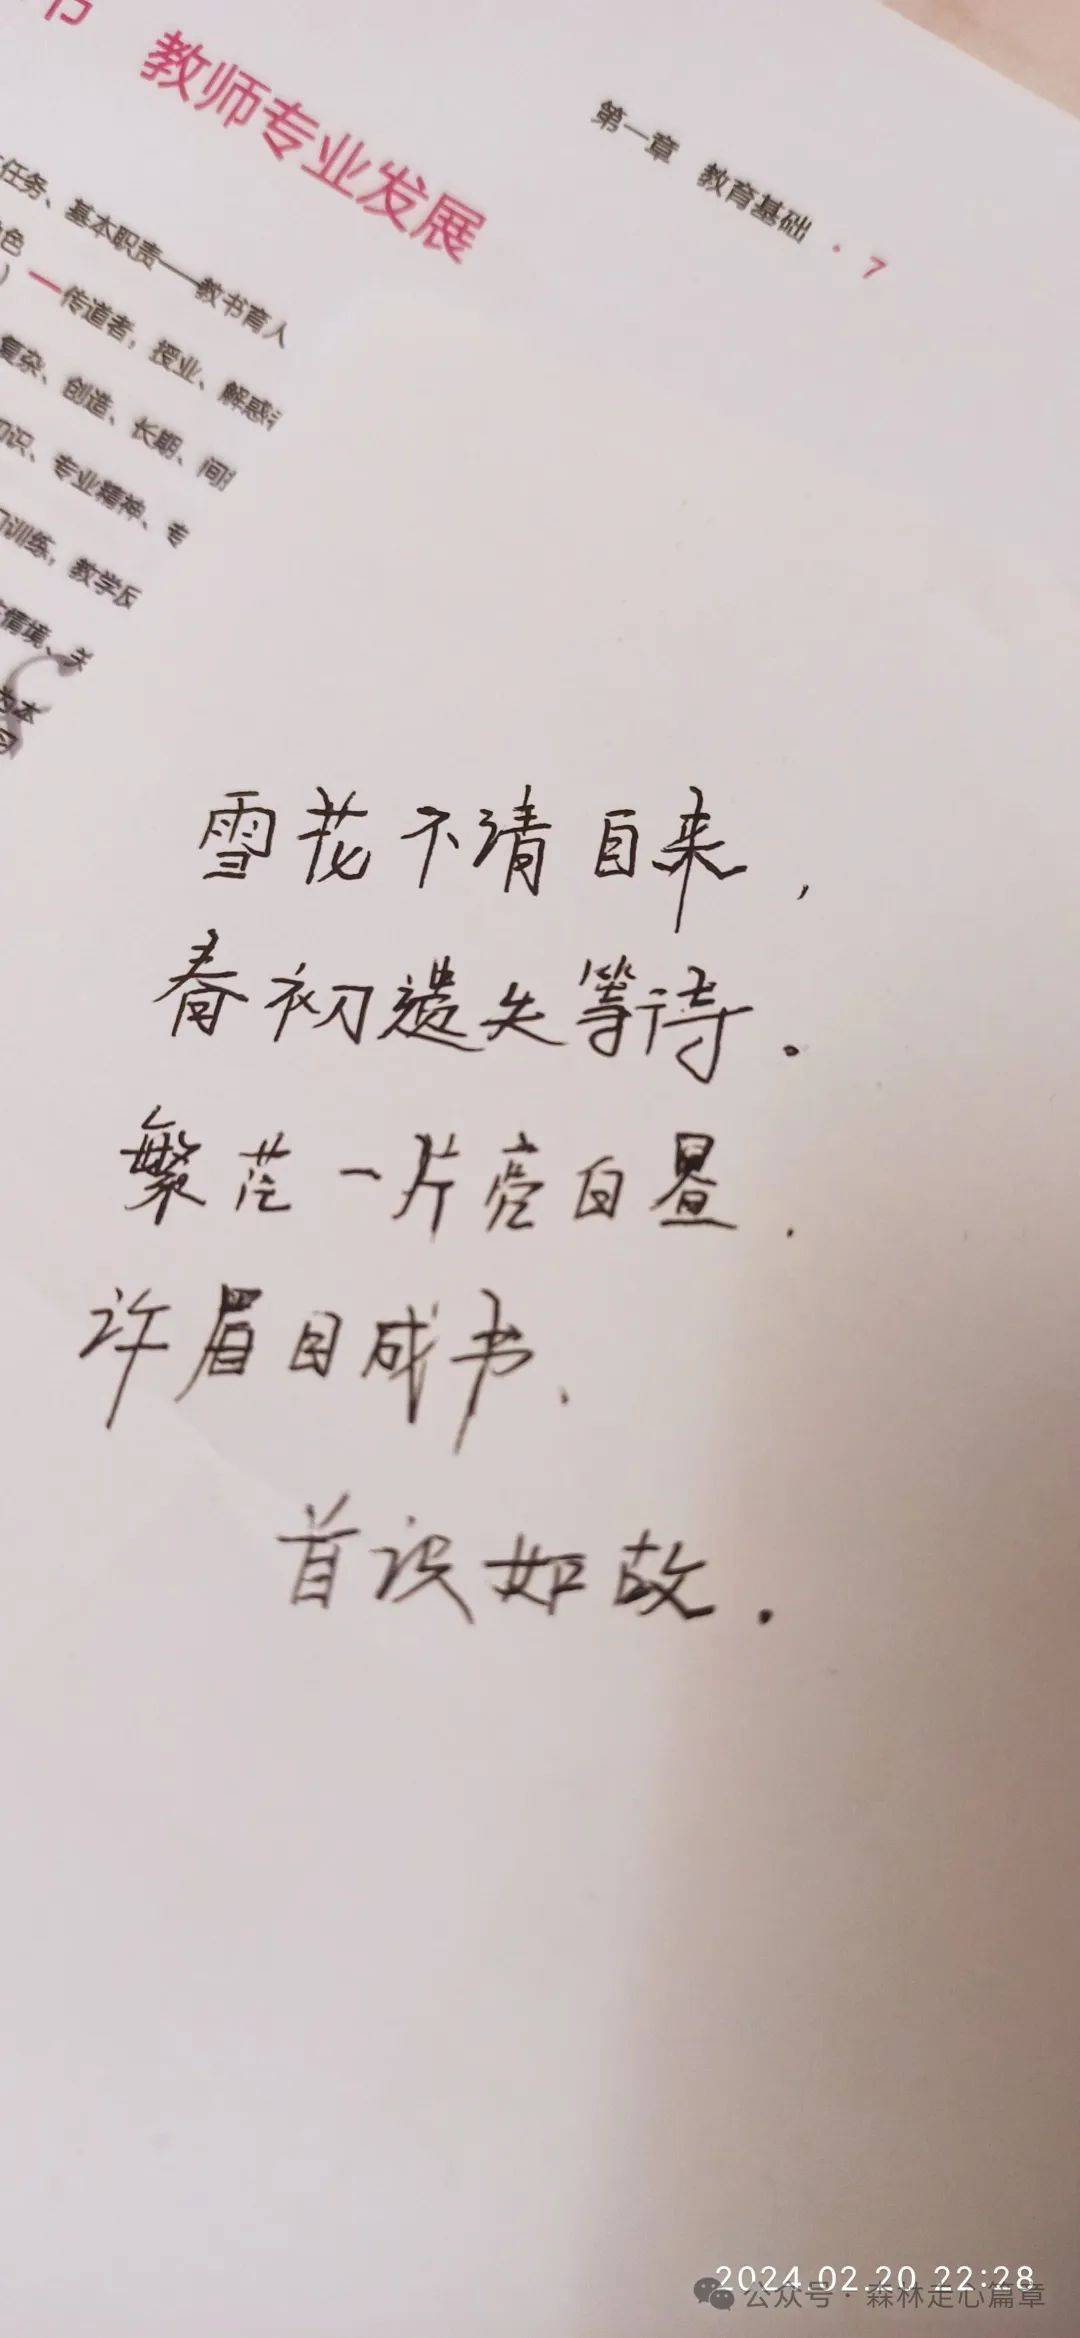 教师专业发展
第一章 教育基础 · 7
任务、基本职责——教书育人
色
)—传道者,授业、解惑
复杂、创造、长期、间
识、专业精神、专
训练,教学反
情境、关
为本
雪花不请自来,
春初遗失等待。
繁茫一片亮白昼.
许眉目成书、
首识如故.
2024.02.20 22:28
公众号·森林走心篇章